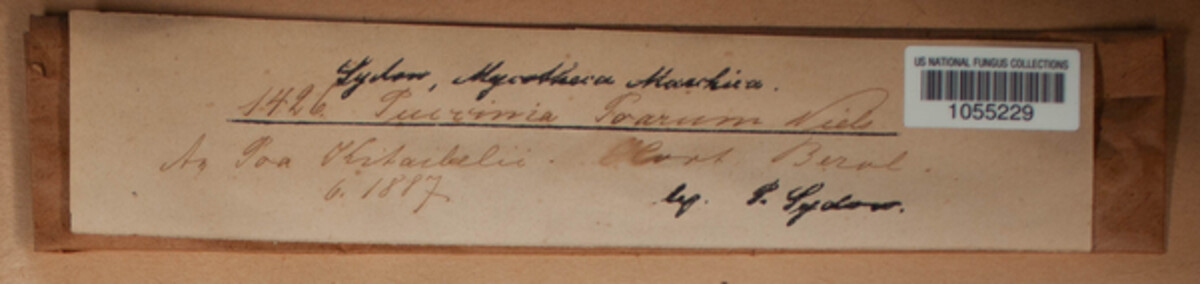 Sydow, Mycotheca Marchica.
1426. Puccinia Poarum Niels
An Poa Kitaibelii. Hort. Berol.
6. 1887
leg. P. Sydow.
US NATIONAL FUNGUS COLLECTIONS
1055229